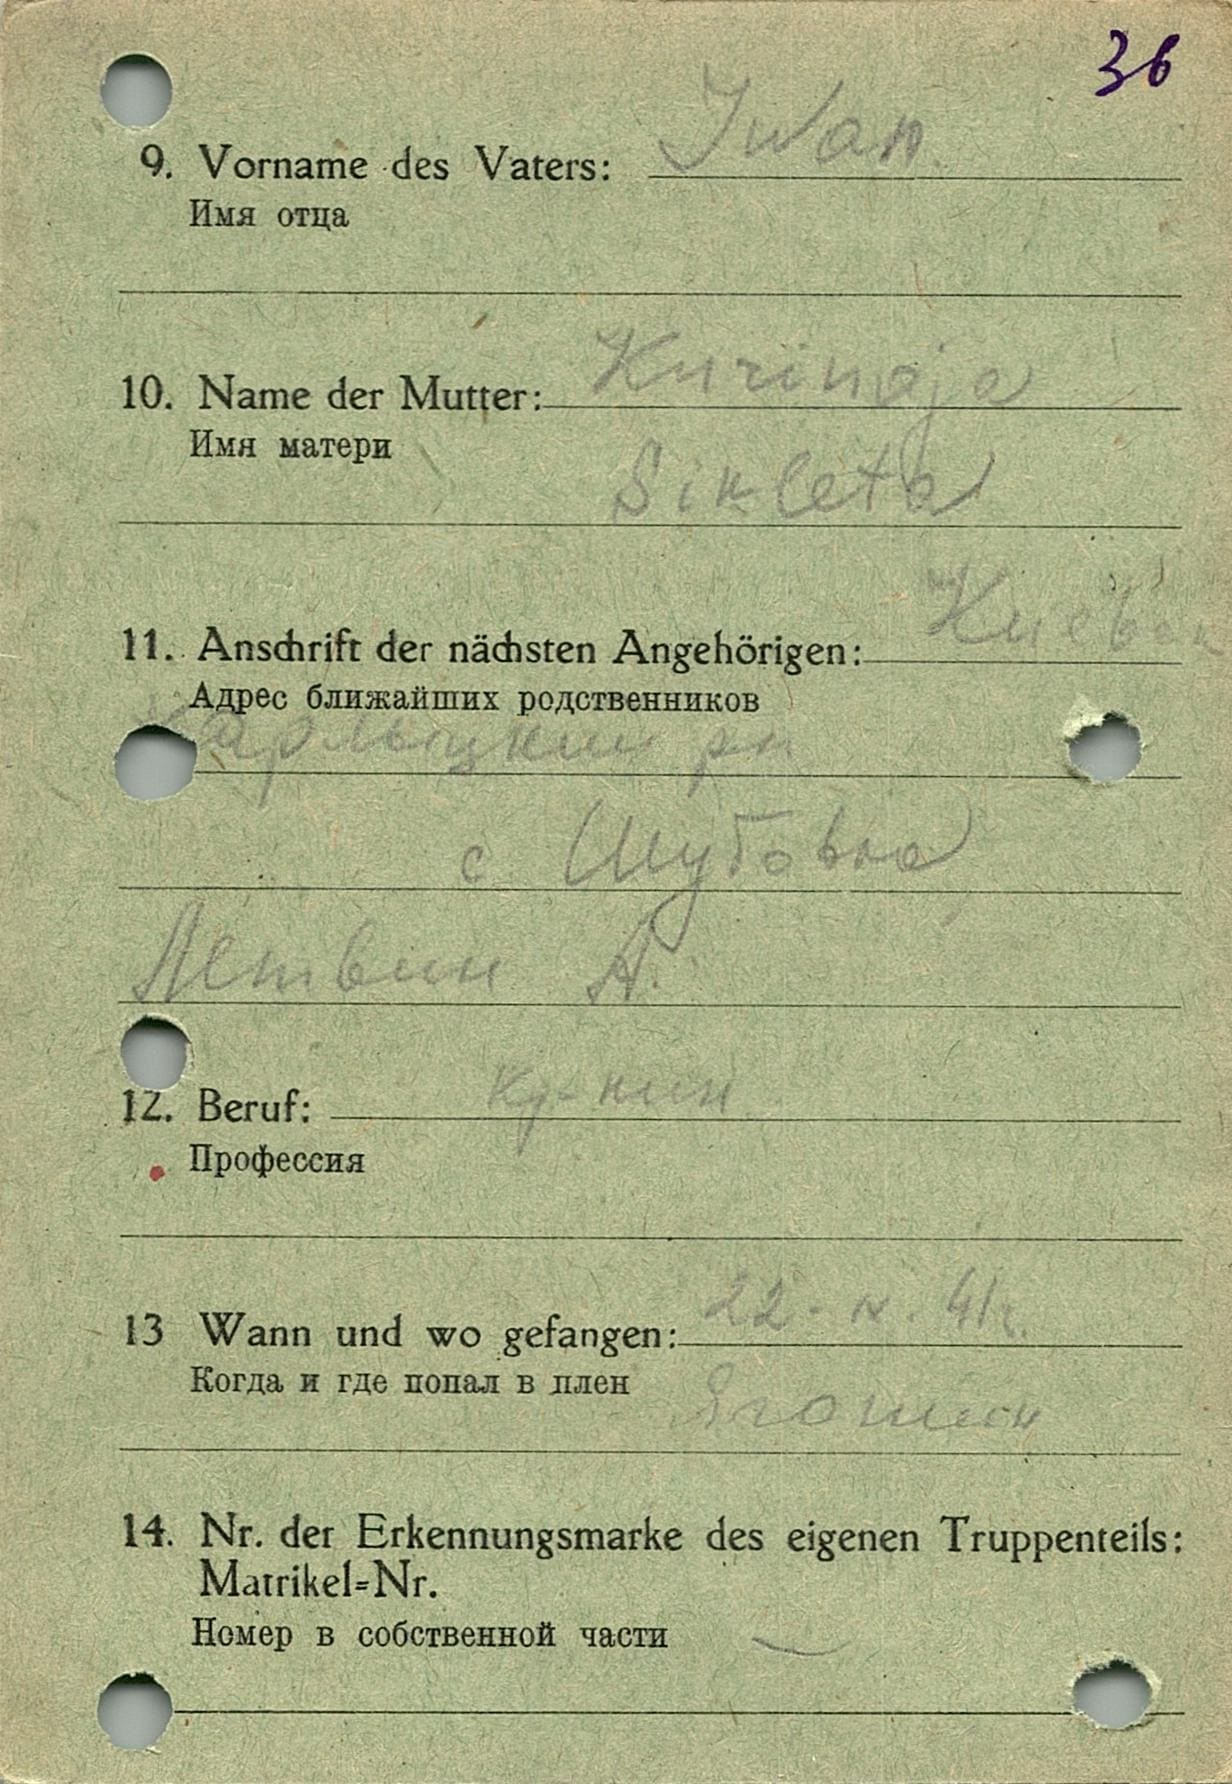 36
9. Vorname des Vaters: Iwan
Имя отца
10. Name der Mutter: Kurinaja
Имя матери
Sinleta
11. Anschrift der nächsten Angehörigen:
Адрес ближайших родственников
рн
с Шубовка
А.
12. Beruf:
Профессия
13 Wann und wo gefangen: 22. 41г.
Когда и где попал в плен
14. Nr. der Erkennungsmarke des eigenen Truppenteils:
Matrikel=Nr.
Номер в собственной части